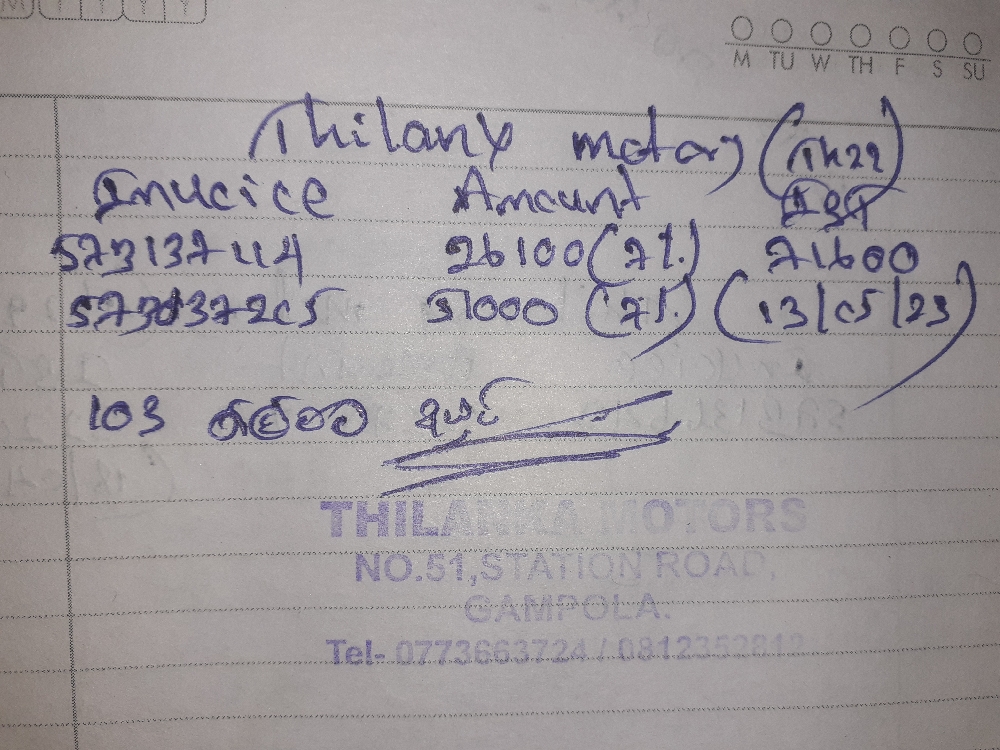 M T Y Y
M TU W TH F S SU
Thilany motors (Th22)
Invoice Amount
57313744 26100 (7%) 71600
573037205 51000 (7%) (13/05/23)
103
THILANKA MOTORS
NO.51,STATION ROAD,
GAMPOLA.
Tel- 0773663724 / 0812352812